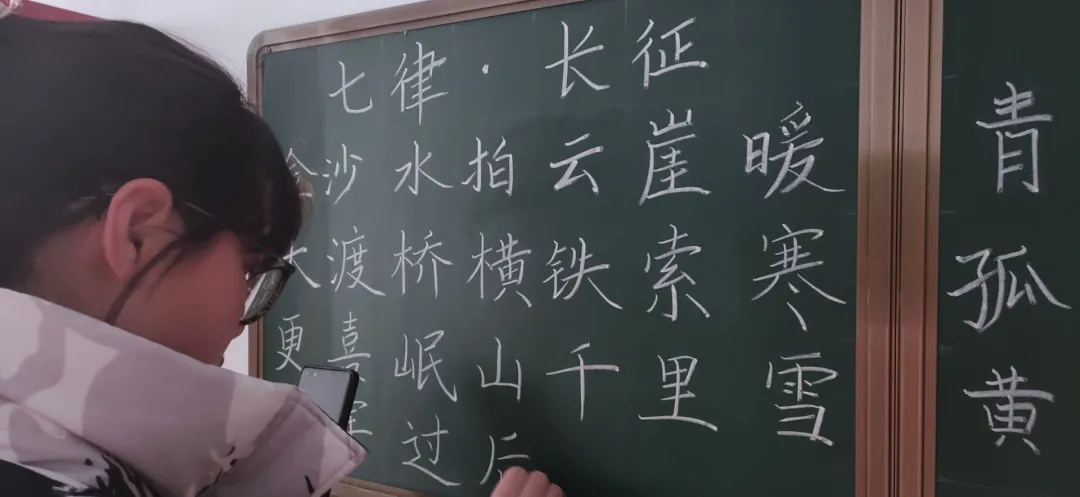 七律·长征
金沙水拍云崖暖
大渡桥横铁索寒
更喜岷山千里雪
军过后
青
孤
黄